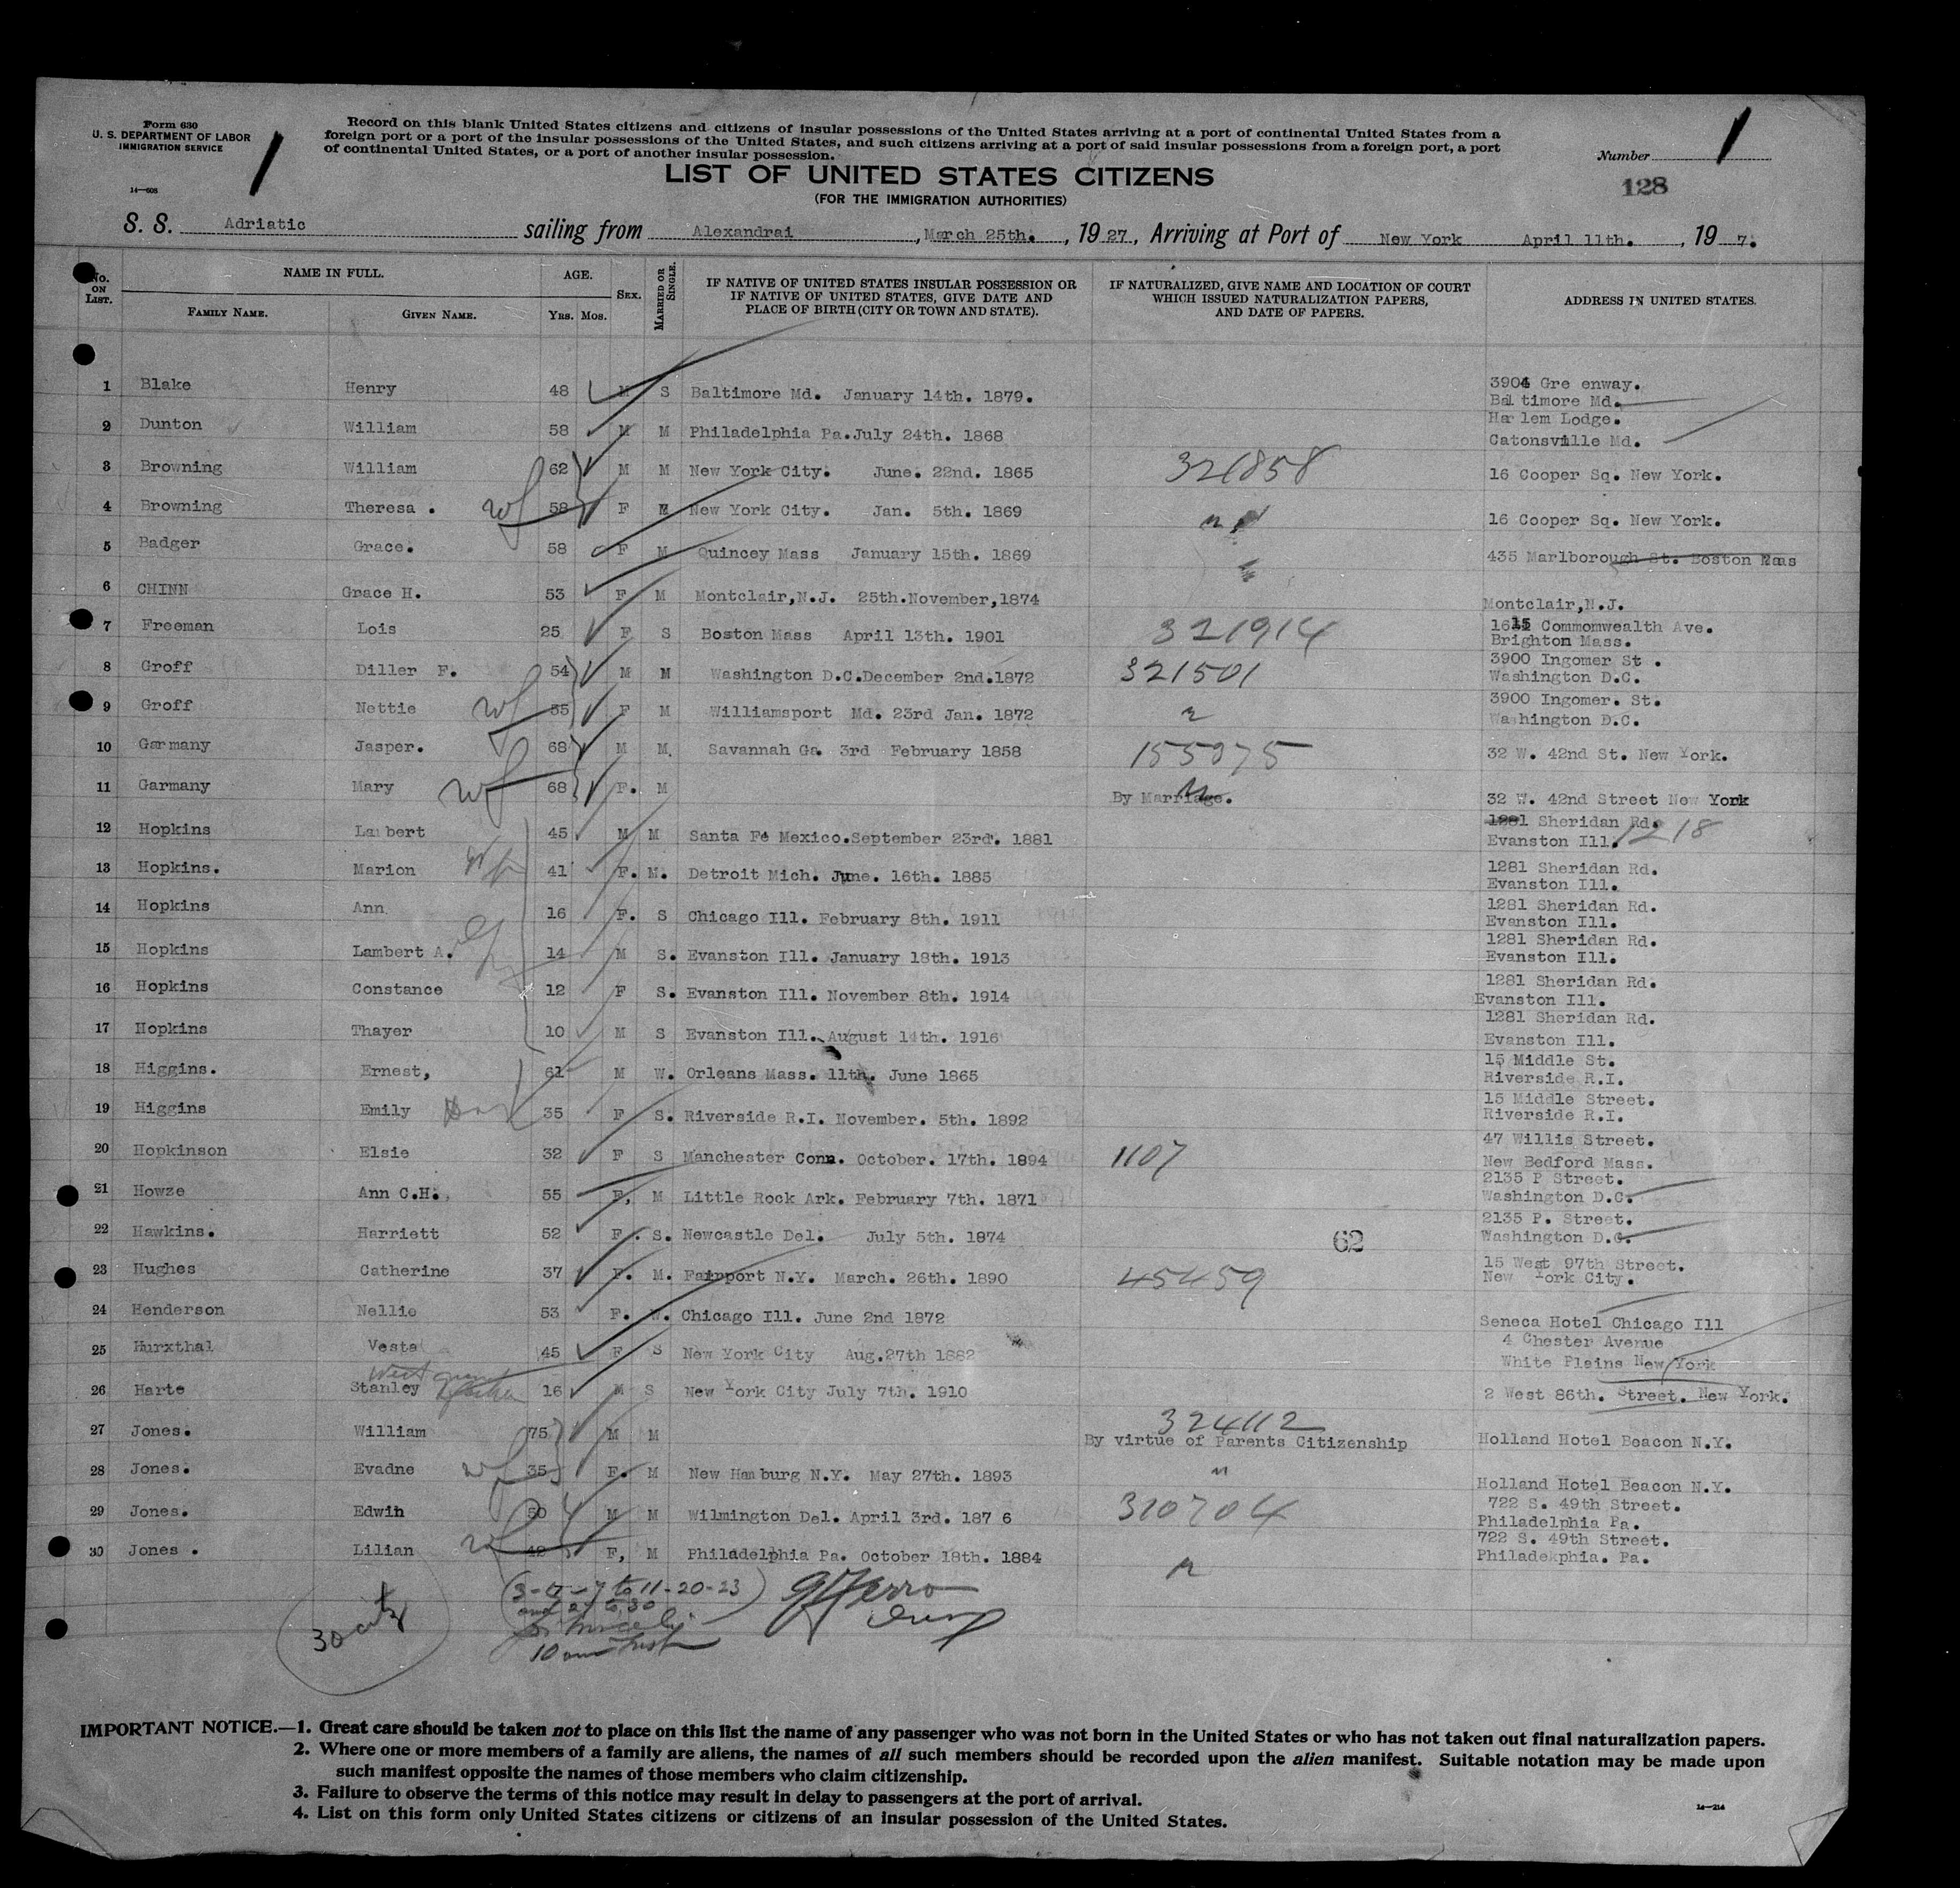 Form 630
U. S. DEPARTMENT OF LABOR
IMMIGRATION SERVICE
14—608
Record on this blank United States citizens and citizens of insular possessions of the United States arriving at a port of continental United States from a
foreign port or a port of the insular possessions of the United States, and such citizens arriving at a port of said insular possessions from a foreign port, a port
of continental United States, or a port of another insular possession.
Number 1
128
LIST OF UNITED STATES CITIZENS
(FOR THE IMMIGRATION AUTHORITIES)
S. S. Adriatic sailing from Alexandrai, March 25th., 1927, Arriving at Port of New York April 11th., 19 7.
No. ON LIST. NAME IN FULL. AGE. SEX. MARRIED OR SINGLE. IF NATIVE OF UNITED STATES INSULAR POSSESSION OR IF NATIVE OF UNITED STATES, GIVE DATE AND PLACE OF BIRTH (CITY OR TOWN AND STATE). IF NATURALIZED, GIVE NAME AND LOCATION OF COURT WHICH ISSUED NATURALIZATION PAPERS, AND DATE OF PAPERS. ADDRESS IN UNITED STATES.
FAMILY NAME. GIVEN NAME. YRS. MOS.
1 Blake Henry 48 M S Baltimore Md. January 14th. 1879. 3904 Gre enway. Bal timore Md.
2 Dunton William 58 M M Philadelphia Pa.July 24th. 1868 Harlem Lodge. Catonsville Md.
3 Browning William 62 M M New York City. June. 22nd. 1865 321858 16 Cooper Sq. New York.
4 Browning Theresa . wf 58 F M New York City. Jan. 5th. 1869 16 Cooper Sq. New York.
5 Badger Grace. 58 F M Quincey Mass January 15th. 1869 435 Marlborough St. Boston Mass
6 CHINN Grace H. 53 F M Montclair,N.J. 25th.November,1874 Montclair,N.J.
7 Freeman Lois 25 F S Boston Mass April 13th. 1901 321914 1615 Commomwealth Ave. Brighton Mass.
8 Groff Diller F. 54 M M Washington D.C.December 2nd.1872 321501 3900 Ingomer St . Washington D.C.
9 Groff Nettie wf 55 F M Williamsport Md. 23rd Jan. 1872 " 3900 Ingomer. St. Washington D.C.
10 Garmany Jasper. 68 M M. Savannah Ga. 3rd February 1858 155975 32 W. 42nd St. New York.
11 Garmany Mary wf 68 F. M By Marriage. 32 W. 42nd Street New York
12 Hopkins Lambert 45 M M Santa Fe Mexico.September 23rd. 1881 1281 Sheridan Rd. Evanston Ill. 1218
13 Hopkins. Marion wf 41 F. M. Detroit Mich. June. 16th. 1885 1281 Sheridan Rd. Evanston Ill.
14 Hopkins Ann 16 F. S Chicago Ill. February 8th. 1911 1281 Sheridan Rd. Evanston Ill.
15 Hopkins Lambert A. 14 M S. Evanston Ill. January 18th. 1913 1281 Sheridan Rd. Evanston Ill.
16 Hopkins Constance 12 F S. Evanston Ill. November 8th. 1914 1281 Sheridan Rd. Evanston Ill.
17 Hopkins Thayer 10 M S Evanston Ill. August 14th. 1916 1281 Sheridan Rd. Evanston Ill.
18 Higgins. Ernest, 61 M W. Orleans Mass. 11th. June 1865 15 Middle St. Riverside R.I.
19 Higgins Emily 35 F S. Riverside R.I. November. 5th. 1892 15 Middle Street. Riverside R.I.
20 Hopkinson Elsie 32 F S Manchester Conn. October. 17th. 1894 1107 47 Willis Street. New Bedford Mass.
21 Howze Ann C.H. 55 F, M Little Rock Ark. February 7th. 1871 2135 P Street. Washington D.C.
22 Hawkins. Harriett 52 F. S. Newcastle Del. July 5th. 1874 62 2135 P. Street. Washington D.C.
23 Hughes Catherine 37 F. M. Fairport N.Y. March. 26th. 1890 45459 15 West 97th Street. New York City.
24 Henderson Nellie 53 F. W. Chicago Ill. June 2nd 1872 Seneca Hotel Chicago Ill
25 Hurxthal Vesta 45 F S New York City Aug.27th 1882 4 Chester Avenue White Plains New York
26 Harte Stanley 16 M S New York City July 7th. 1910 2 West 86th. Street. New York.
27 Jones. William 75 M M 324112 By virtue of Parents Citizenship Holland Hotel Beacon N.Y.
28 Jones. Evadne wf 35 F. M New Hamburg N.Y. May 27th. 1893 " Holland Hotel Beacon N.Y.
29 Jones. Edwin 50 M M Wilmington Del. April 3rd. 187 6 310704 722 S. 49th Street. Philadelphia Pa.
30 Jones . Lilian wf 42 F, M Philadelphia Pa. October 18th. 1884 " 722 S. 49th Street. Philadekphia. Pa.
to 11-20-23
to 30
IMPORTANT NOTICE.—1. Great care should be taken not to place on this list the name of any passenger who was not born in the United States or who has not taken out final naturalization papers.
2. Where one or more members of a family are aliens, the names of all such members should be recorded upon the alien manifest. Suitable notation may be made upon
such manifest opposite the names of those members who claim citizenship.
3. Failure to observe the terms of this notice may result in delay to passengers at the port of arrival.
4. List on this form only United States citizens or citizens of an insular possession of the United States.
14—214